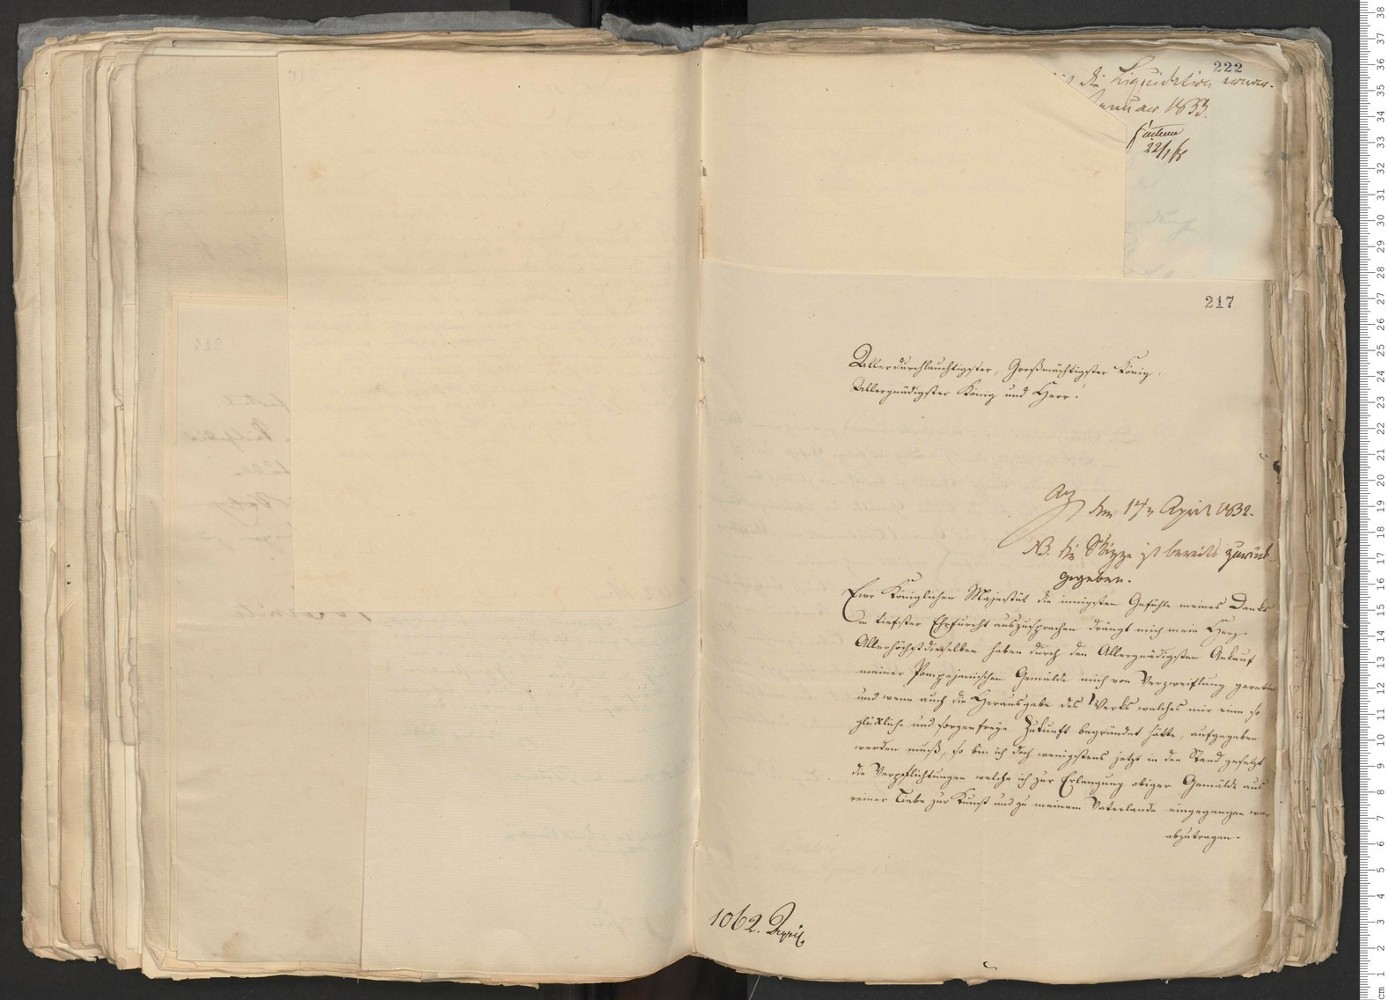 222
die Liquidation
Januar 1833.
22/1
217
Allerdurchlauchtigster, Großmächtigster König.
Allergnädigster König und Herr!
den 17n April 1832.
NB. die Skizze ist bereits zurück-
gegeben.
Euer Königlichen Majestät die innigsten Gefühle meines Danks
in tiefster Ehrfurcht auszusprechen drängt mich mein Herz.
Allerhöchstdieselben haben durch den Allergnädigsten Ankauf
meiner Pompejanischen Gemälde mich von Verzweiflung gerettet
und wenn auch die Herausgabe des Werks welches mir eine so
glückliche und sorgenfreye Zukunft begründet hätte, aufgegeben
werden muß, so bin ich doch wenigstens jetzt in den Stand gesetzt
die Verpflichtungen welche ich zur Erlangung obiger Gemälde aus
reiner Liebe zur Kunst und zu meinem Vaterlande eingegangen war
abzutragen.
1062. April